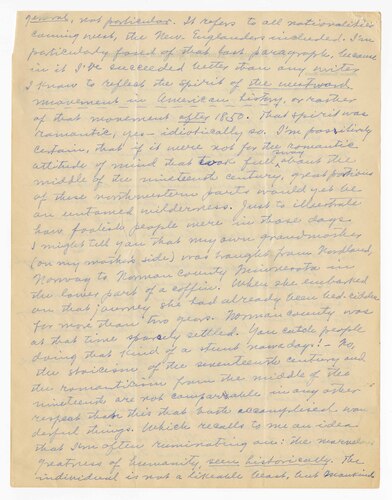 general, not particular. It refers to all nationalities
coming west, the New Englanders included. I'm
particularly fond of that last paragraph, because
in it I've succeeded better than any writer
I know to reflect the spirit of the westward
movement in American history, or rather
of that movement after 1850. That spirit was
romantic, yes - idiotically so. I'm positively
certain, that if it were not for the romantic
attitude of mind that took full sway about the
middle of the nineteenth century, great portions
of these northwestern parts would yet be
an untamed wilderness. Just to illustrate
how foolish people were in those days
I might tell you that my own grandmother
(on my mother's side) was brought from Nordland,
Norway to Norman County Minnesota in
the lower part of a coffin. When she embarked
on that journey she had already been bed-ridden
for more than two years. Norman county was
at that time sparsely settled. You catch people
doing that kind of a stunt nowadays! - No,
the stoicism of the seventeenth century and
the romanticism from the middle of the
nineteenth are not comparable in any other
respect than this that both accomplished won
derful things. Which recalls to me an idea
that I'm often ruminating on: the marvelous
greatness of humanity, seen historically. The
individual is not a likeable beast, but mankind